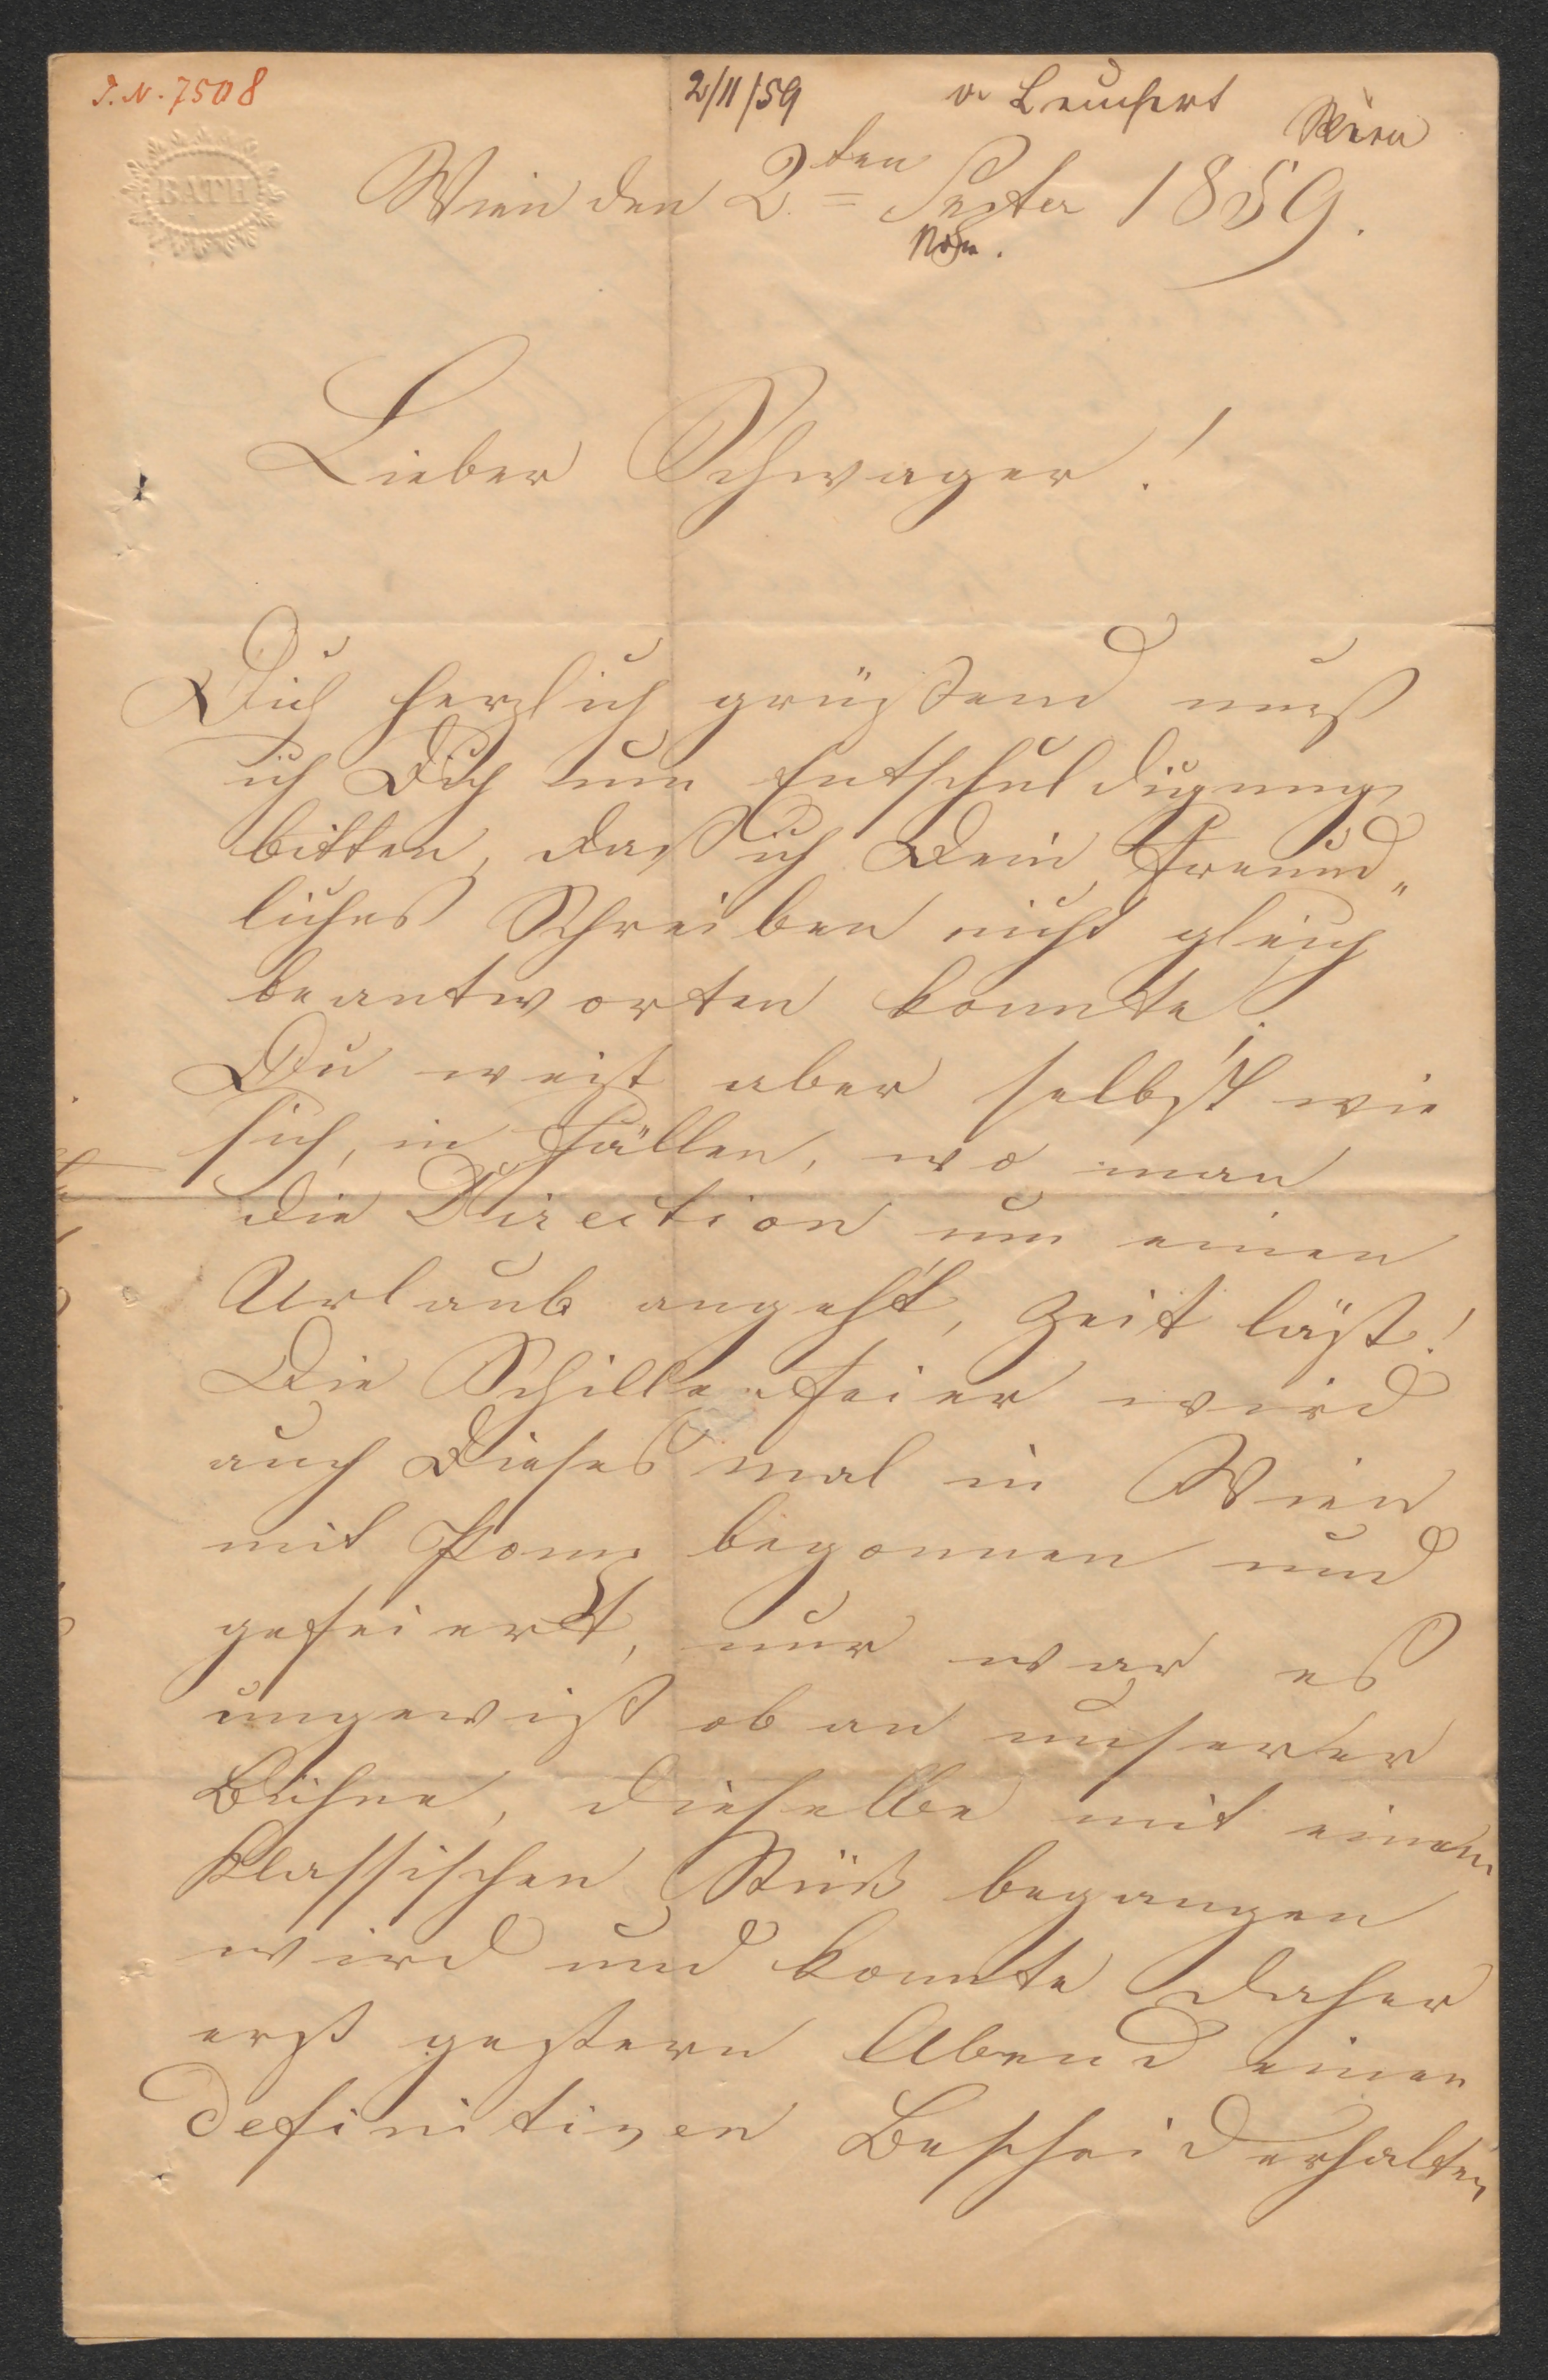 I. N. 7508
2/11/59
v. Leuchert
Wien
BATH
Wien den 2.ten Septer 1859.
Nov.
Lieber Schwager!
Dich herzlich grüßend muß
ich Dich um Entschuldigung
bitten, daß ich Dein freund„
liches Schreiben nicht gleich
beantworten konnte!
Du weist aber selbst wie
sich, in Fällen, wo man
die Direction um einen
Urlaub angeht, Zeit läßt!
Die Schillerfeier wird
auch Dieses mal in Wien
mit Pomp begonnen und
gefeiert, nur war es
ungewiß ob an unserer
Bühne, dieselbe mit einem
klassischen Stück begangen
wird und konnte daher
erst gestern Abend einen
definitiven Bescheid erhalten